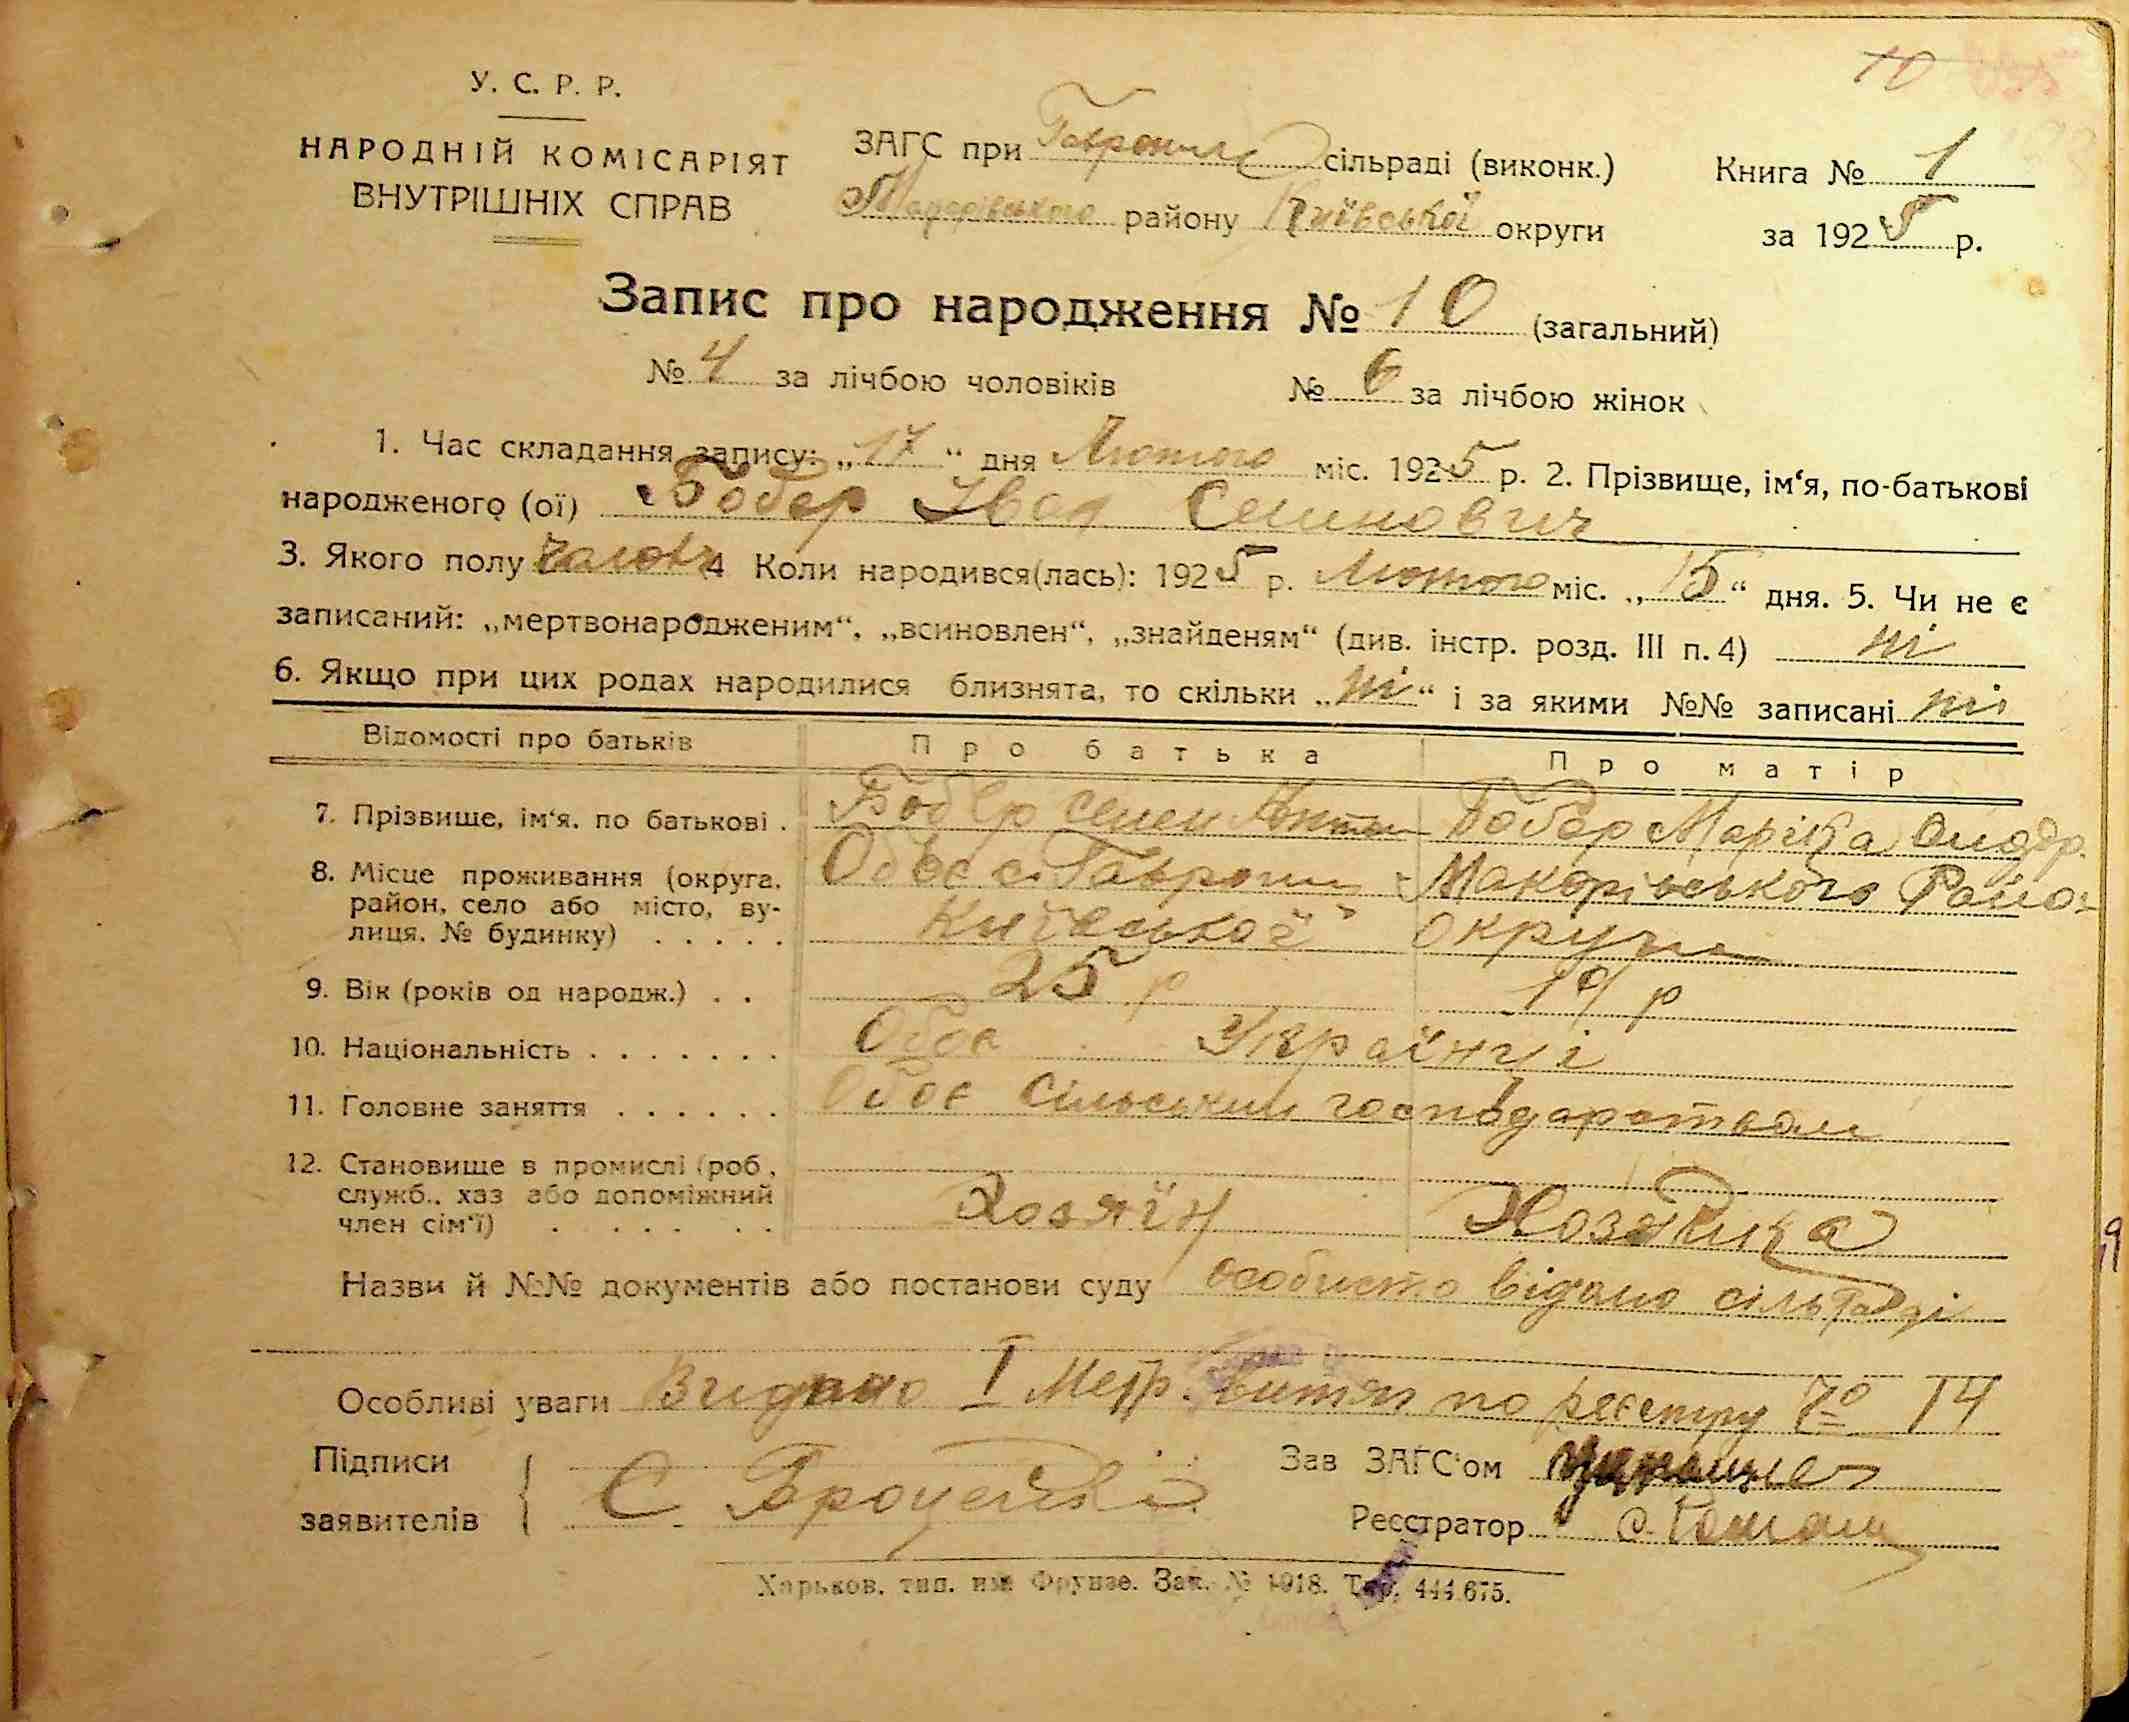 10
У. С. Р. Р.
НАРОДНІЙ КОМІСАРІЯТ
ВНУТРІШНІХ СПРАВ
ЗАГС при Гавронщ. сільраді (виконк.)
Макарівського району Київської округи
Книга № 1
за 1925 р.
Запис про народження № 10 (загальний)
№ 4 за лічбою чоловіків № 6 за лічбою жінок
1. Час складання запису: „17“ дня Лютого міс. 1925 р. 2. Прізвище, ім‘я, по-батькові
народженого (ої) Бобер Іван Семинович
3. Якого полу Чолов. 4 Коли народився(лась): 1925 р. Лютого міс. „15“ дня. 5. Чи не є
записаний: „мертвонародженим“, „всиновлен“, „знайденям“ (див. інстр. розд. III п. 4) ні
6. Якщо при цих родах народилися близнята, то скільки „ні“ і за якими №№ записані ні
Відомості про батьків Про батька Про матір
7. Прізвище, ім‘я, по батькові . Бобер Семен Антон Бобер Марійка Ондр.
8. Місце проживання (округа, Обоє с. Гавронщ Макарівського Райо-
район, село або місто, ву-
лиця, № будинку) . . . . . Київської округи
9. Вік (років од народж.) . . 25 р 19 р
10. Національність . . . . . . . Обоє Українці
11. Головне заняття . . . . . . Обоє Сільським господарством
12. Становище в промислі (роб.,
служб., хаз або допоміжний
член сім‘ї) . . . . . . Хозяїн Хозяйка
Назви й №№ документів або постанови суду особисто відомо сільраді
Особливі уваги Видано I Метр. витяг по реєстру 7º 14
Підписи
заявителів
Зав ЗАГС‘ом
Реєстратор
Харьков. тип. им Фрунзе. Зак. № 1918. Тир. 444.675.